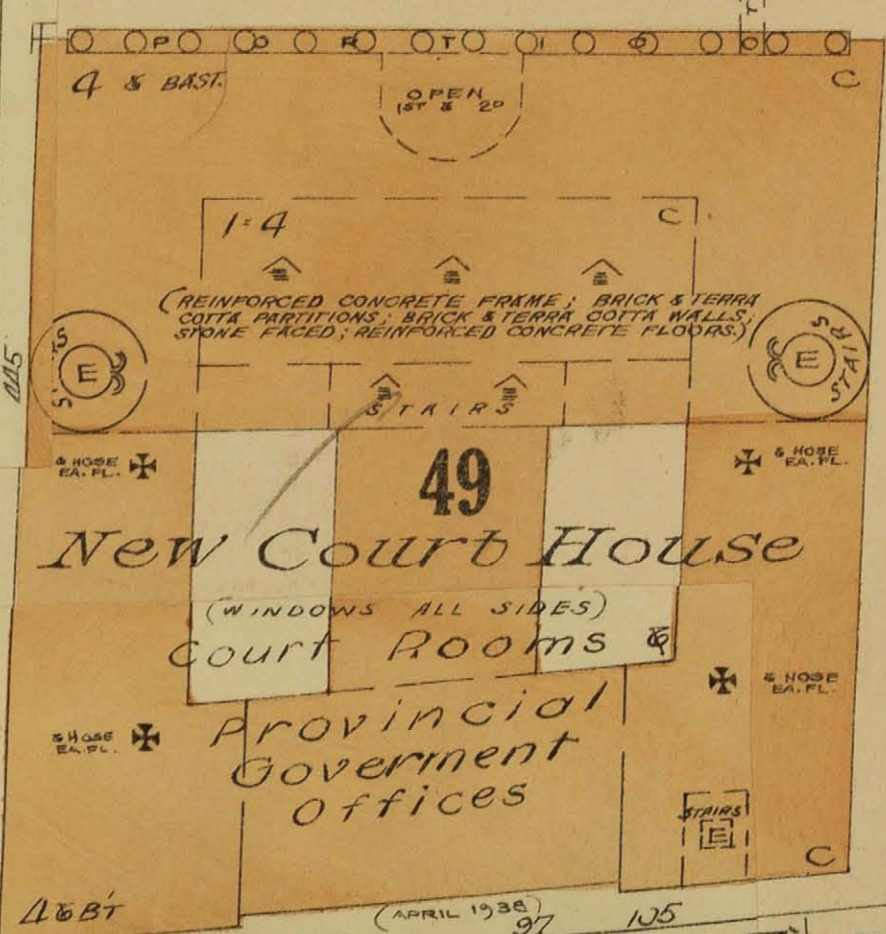 PORTICO
4 & BAST.
C
OPEN
1ST & 2D
1=4
C
(REINFORCED CONCRETE FRAME; BRICK & TERRA
COTTA PARTITIONS; BRICK & TERRA COTTA WALLS;
STONE FACED; REINFORCED CONCRETE FLOORS.)
E
E
STAIRS
STAIRS
& HOSE
EA. FL.
& HOSE
EA. FL.
49
New Court House
(WINDOWS ALL SIDES)
Court Rooms &
& HOSE
EA. FL.
& HOSE
EA. FL.
Provincial
Goverment
Offices
STAIRS
E
C
4 & B'T
(APRIL 1938)
97
105